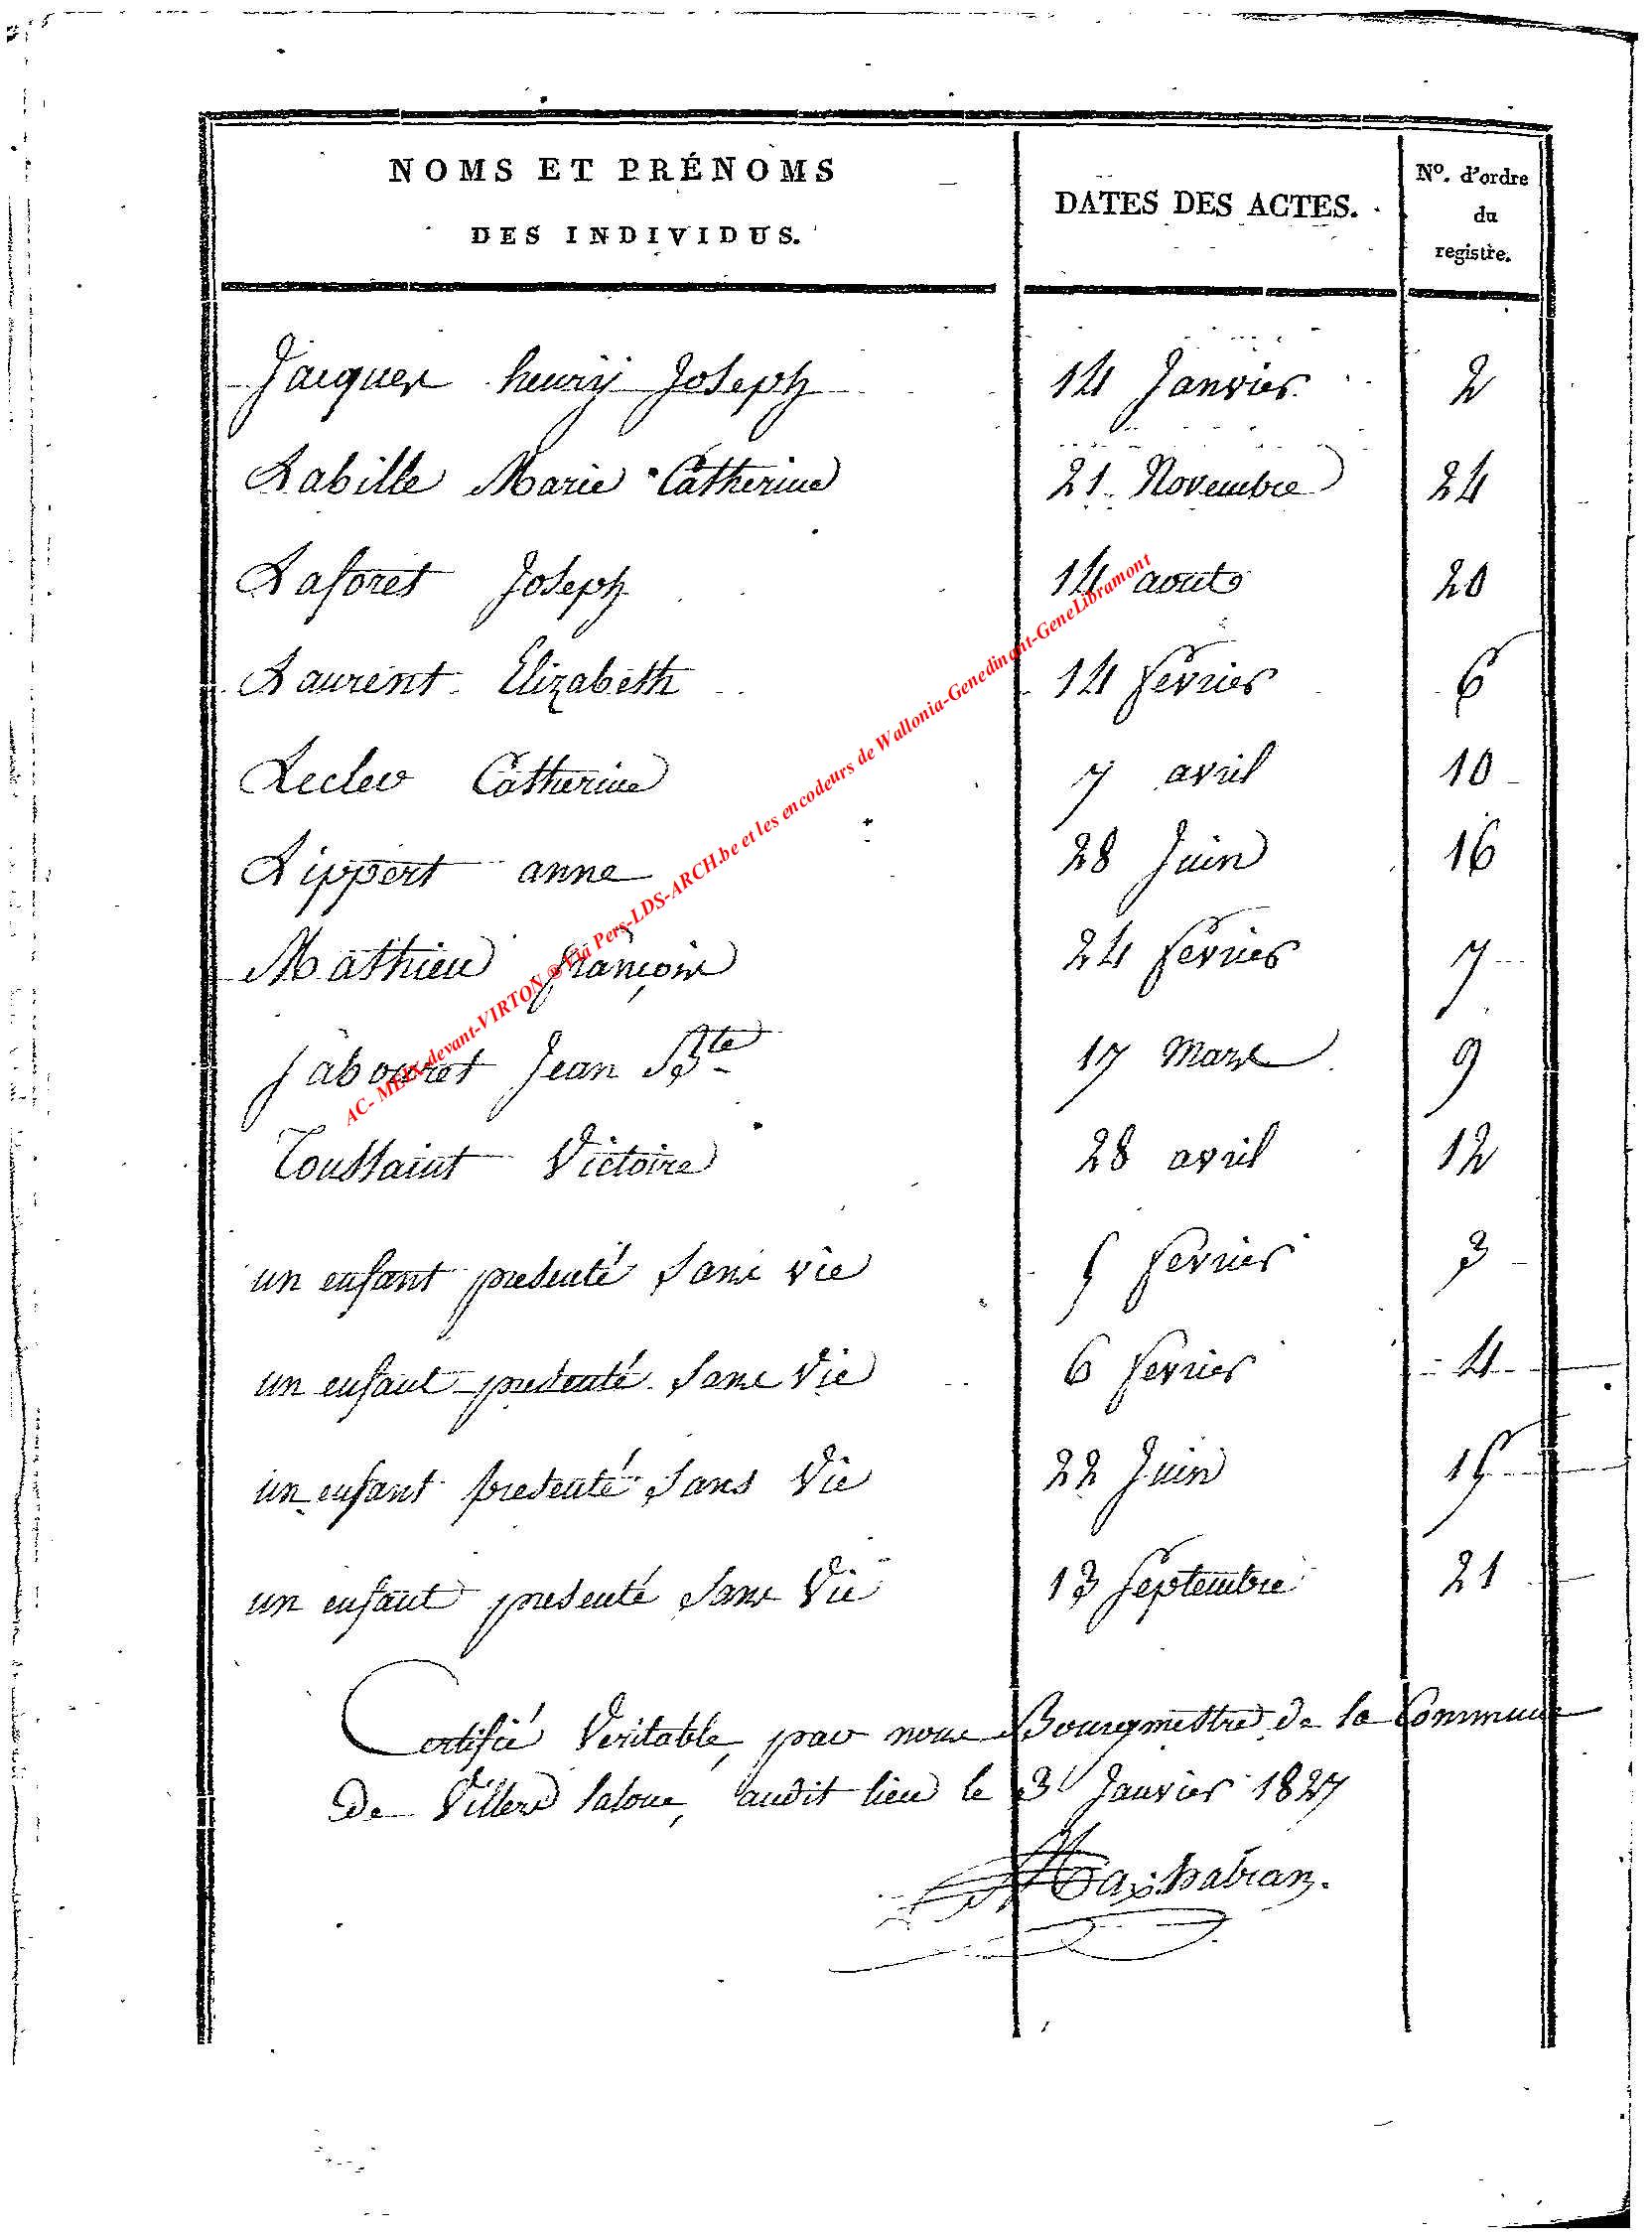 NOMS ET PRÉNOMS
DES INDIVIDUS.
DATES DES ACTES.
Nº. d'ordre
du
registre.
Jacques henry Joseph 14 Janvier 2
Labille Marie Catherine 21 Novembre 24
Laforet Joseph 14 aout 20
Laurent Elizabeth 14 fevrier 6
Lecler Catherine 7 avril 10
Lippert anne 28 Juin 16
Mathieu françois 24 fevrier 7
Sabouret Jean Bte 17 Mars 9
Toussaint Victoire 28 avril 12
un enfant presenté sans vie 5 fevrier 3
un enfant presenté sans Vie 6 fevrier 4
un enfant presenté sans Vie 22 Juin 15
un enfant presenté sans Vie 13 Septembre 21
Certifié Veritable, par nous Bourgmettre de la Commune
de Villers laloue, audit lieu le 3 Janvier 1827
AC- MEIX-devant-VIRTON ® Via Pers-LDS-ARCH.be et les encodeurs de Wallonia-Genedinant-GeneLibramont